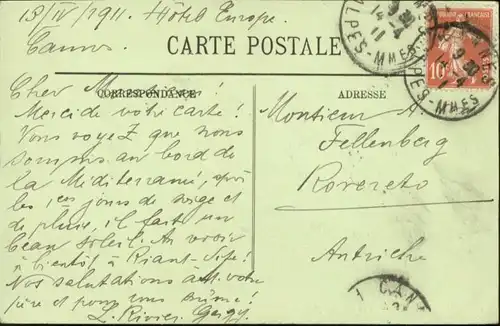 13/IV/1911. Hôtel Europe.
Cannes
CARTE POSTALE
CORRESPONDANCE
ADRESSE
Cher M
Merci de votre carte!
Vous voyez que nous
sommes au bord de
la Méditerranée, après
les 1ers jours de neige et
de pluie, il fait un
beau soleil. Au revoir
à bientôt à Riant-Site!
Nos salutations à votre
père et pour vous
L. Rivier Geigy
Monsieur A.
Fellenberg
Rovereto
Autriche
10
ALPES-MMES